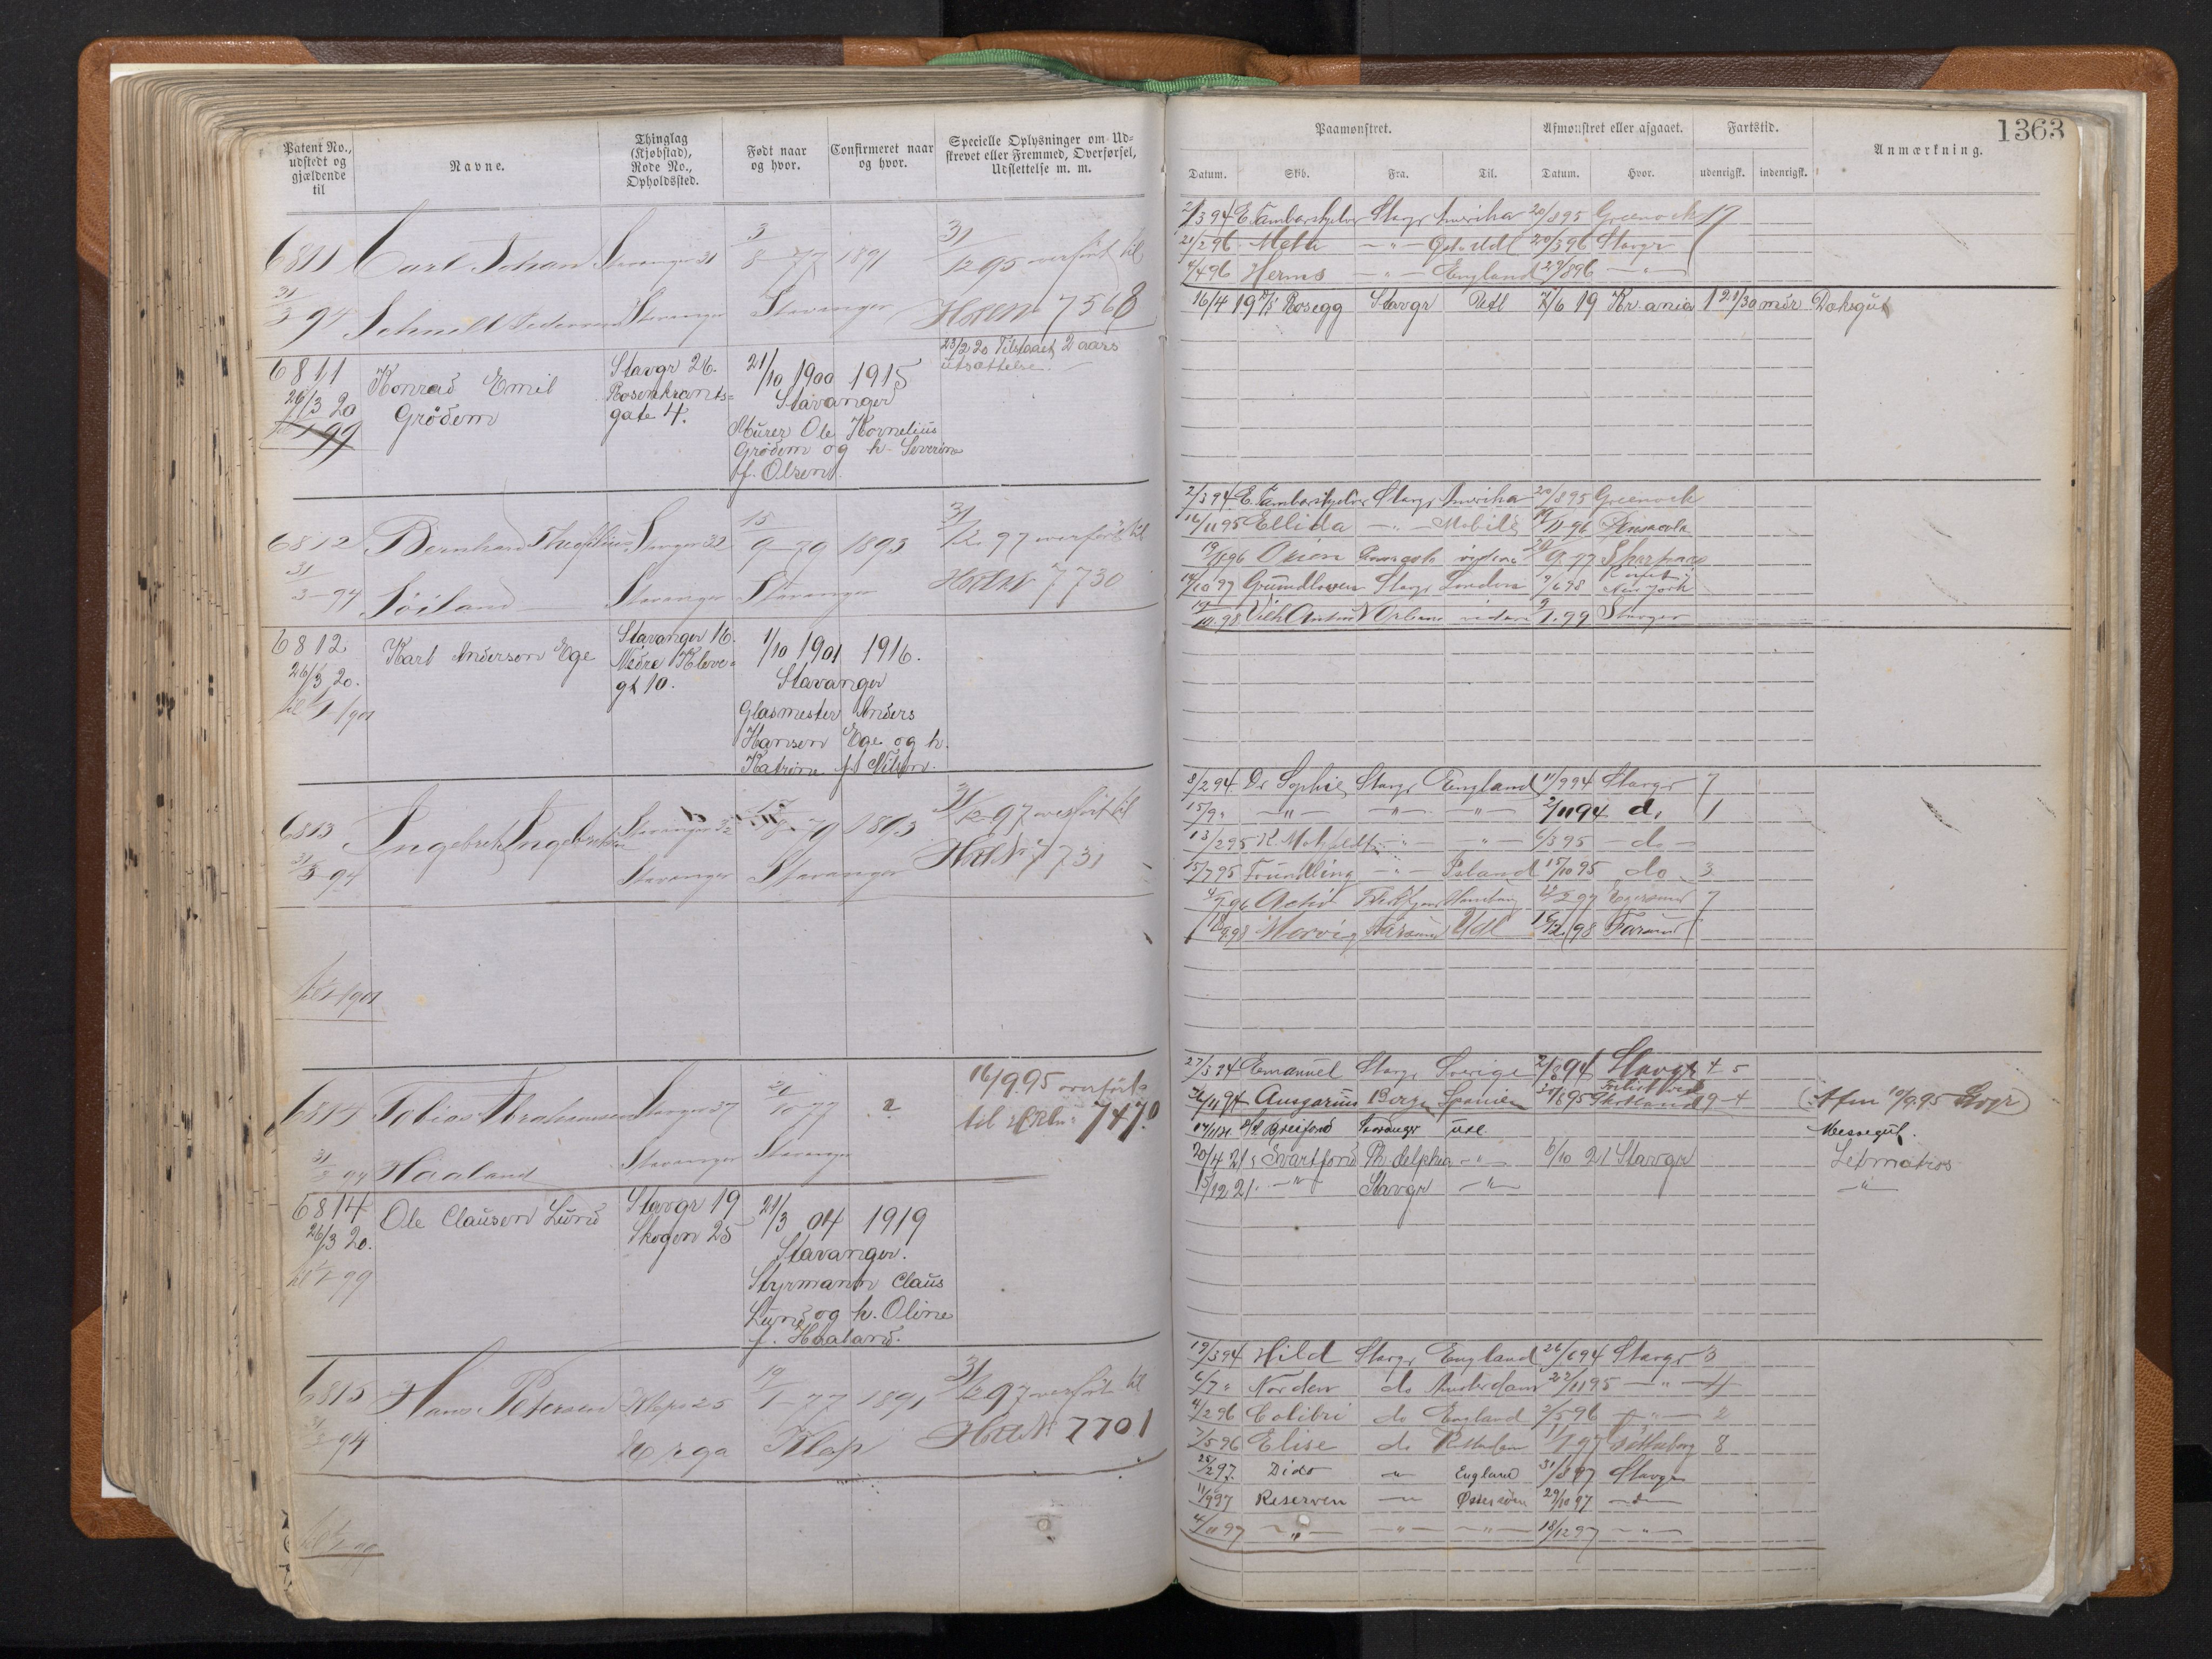 Patent No., udstedt og gjældende til
Navne.
Thinglag (Kjøbstad), Rode No., Opholdssted.
Født naar og hvor.
Confirmeret naar og hvor.
Specielle Oplysninger om Udskrevet eller Fremmed, Overførsel, Udslettelse m. m.
6811 Carl Johan Stavanger 31 3/8-77 1891 31/12 95 overført til
31/3 94 Schmidt Pedersen Stavanger Stavanger 7568
6811 Konrad Emil Stavgr 26. 21/10 1900 1915 23/2 20 Tilstaaet 2 aars
26/3 20 Grödem Rosenkrants= Stavanger utsættelse.
til 1/1 99 gate 4. Murer Ole Kornelius
Grödem og h. Severine
f. Olsen
6812 Bernhard Stavgr 32 15/9-79 1893 31/12 97 overført til
31/3-94 Söiland Stavanger Stavanger 7730
6812. Karl Anderson Ege Stavanger 16. 1/10 1901 1916.
26/3 20. Nedre Kleve= Stavanger
til 1/1 1901 gt 10. Glasmester Anders
Hansen Ege og h.
Katrine f. Nilsen.
6813 Ingebret Ingebretsen Stavanger 79 1893 31/12 97 overført til
31/3-94 Stavanger Stavanger 7731
til 1/1 1901
6814 Tobias Abrahamsen Stavanger 37 21/10-77 ? 16/9 95 overført
31/3 94 Haaland Stavanger Stavanger til 7470
6814 Ole Clausen Lund Stavgr 19 21/3 04 1919
26/3 20. Skogen 25 Stavanger.
til 1/1 99 Styrmann Claus
Lund og h. Oline
f. Haaland.
6815 Hans Petersen Klepp 25 19/1-77 1891 31/12 97 overført til
31/3 94 Erga Klep 7701
til 1/1 99
1363
Paamønstret.
Afmønstret eller afgaaet.
Fartstid.
Anmærkning.
Datum. Skib. Fra. Til. Datum. Hvor. udenrigsk. indenrigsk.
2/3 94 E. Tambarskjelver Stavgr Amerika 20/8 95 Greenock 17
21/2 96 Meta -"- Udl 20/3 96 Stavgr
4/4 96 Herms -"- England 29/8 96 -"-
16/4 19 Rosegg Stavgr Utl 7/6 19 Kr.ania 1 21/30 mdr Dæksgut
2/3 94 E. Tambarskjelver Stavgr Amerika 20/8 95 Greenock
16/11 95 Ellida -"- Mobile 96 Pensacola
Orion videre
10 97 Grundloven Stavgr London 6 98 New York
98 Vilh videre 99 Stavger
8/2 94 Dr Sophie Stavgr England 11/9 94 Stavgr 7
15/9 " -"- -"- -"- 2/11 94 d. 1
13/2 95 -"- -"- 6/3 95 -do-
15/7 95 Foundling -"- Island 15/10 95 do 3
96 Activ Hamburg 97 Egersund 7
98 Farsund Udl 98 Farsund
27/3 94 Emanuel Stavgr Sverige 94 Stavgr 4 5
11 94 Ansgarius Bergen Spanien 95 Forlist ved 9-4 (Afm 10/9 95 Stvgr)
Stavanger utl. Messegut.
20/4 21 Svartfond Ph.delphia -"- 6/10 21 Stavgr Letmatros
15/12 21. -"- Stavgr -"- -"-
19/3 94 Hild Stavgr England 26/6 94 Stavgr 3
6/7 " Norden do Amsterdam 22/11 95 -"- 4
4/2 96 Colibri do England 2/5 96 -"- 2
7/5 96 Elise do 97 8
25/2 97. Dido " England 31/8 97 Stavgr
11/9 97 Reserven -"- Østersöen 29/10 97 -"-
4/11 97 -"- -"- -"- 18/12 97 -"-